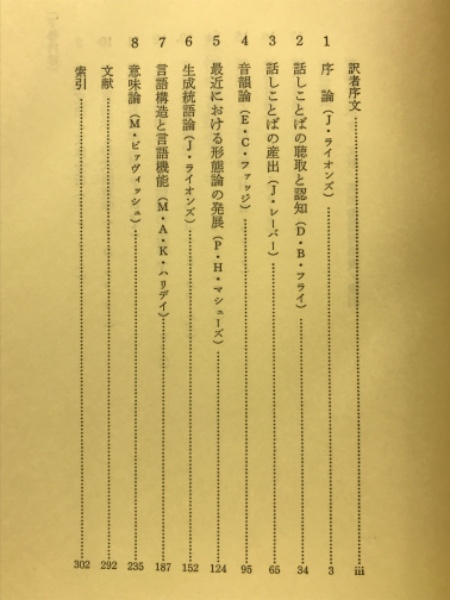 訳者序文 iii
1 序論（J・ライオンズ） 3
2 話しことばの聴取と認知（D・B・フライ） 34
3 話しことばの産出（J・レーバー） 65
4 音韻論（E・C・ファッジ） 95
5 最近における形態論の発展（P・H・マシューズ） 124
6 生成統語論（J・ライオンズ） 152
7 言語構造と言語機能（M・A・K・ハリデイ） 187
8 意味論（M・ビァヴィッシュ） 235
文献 292
索引 302